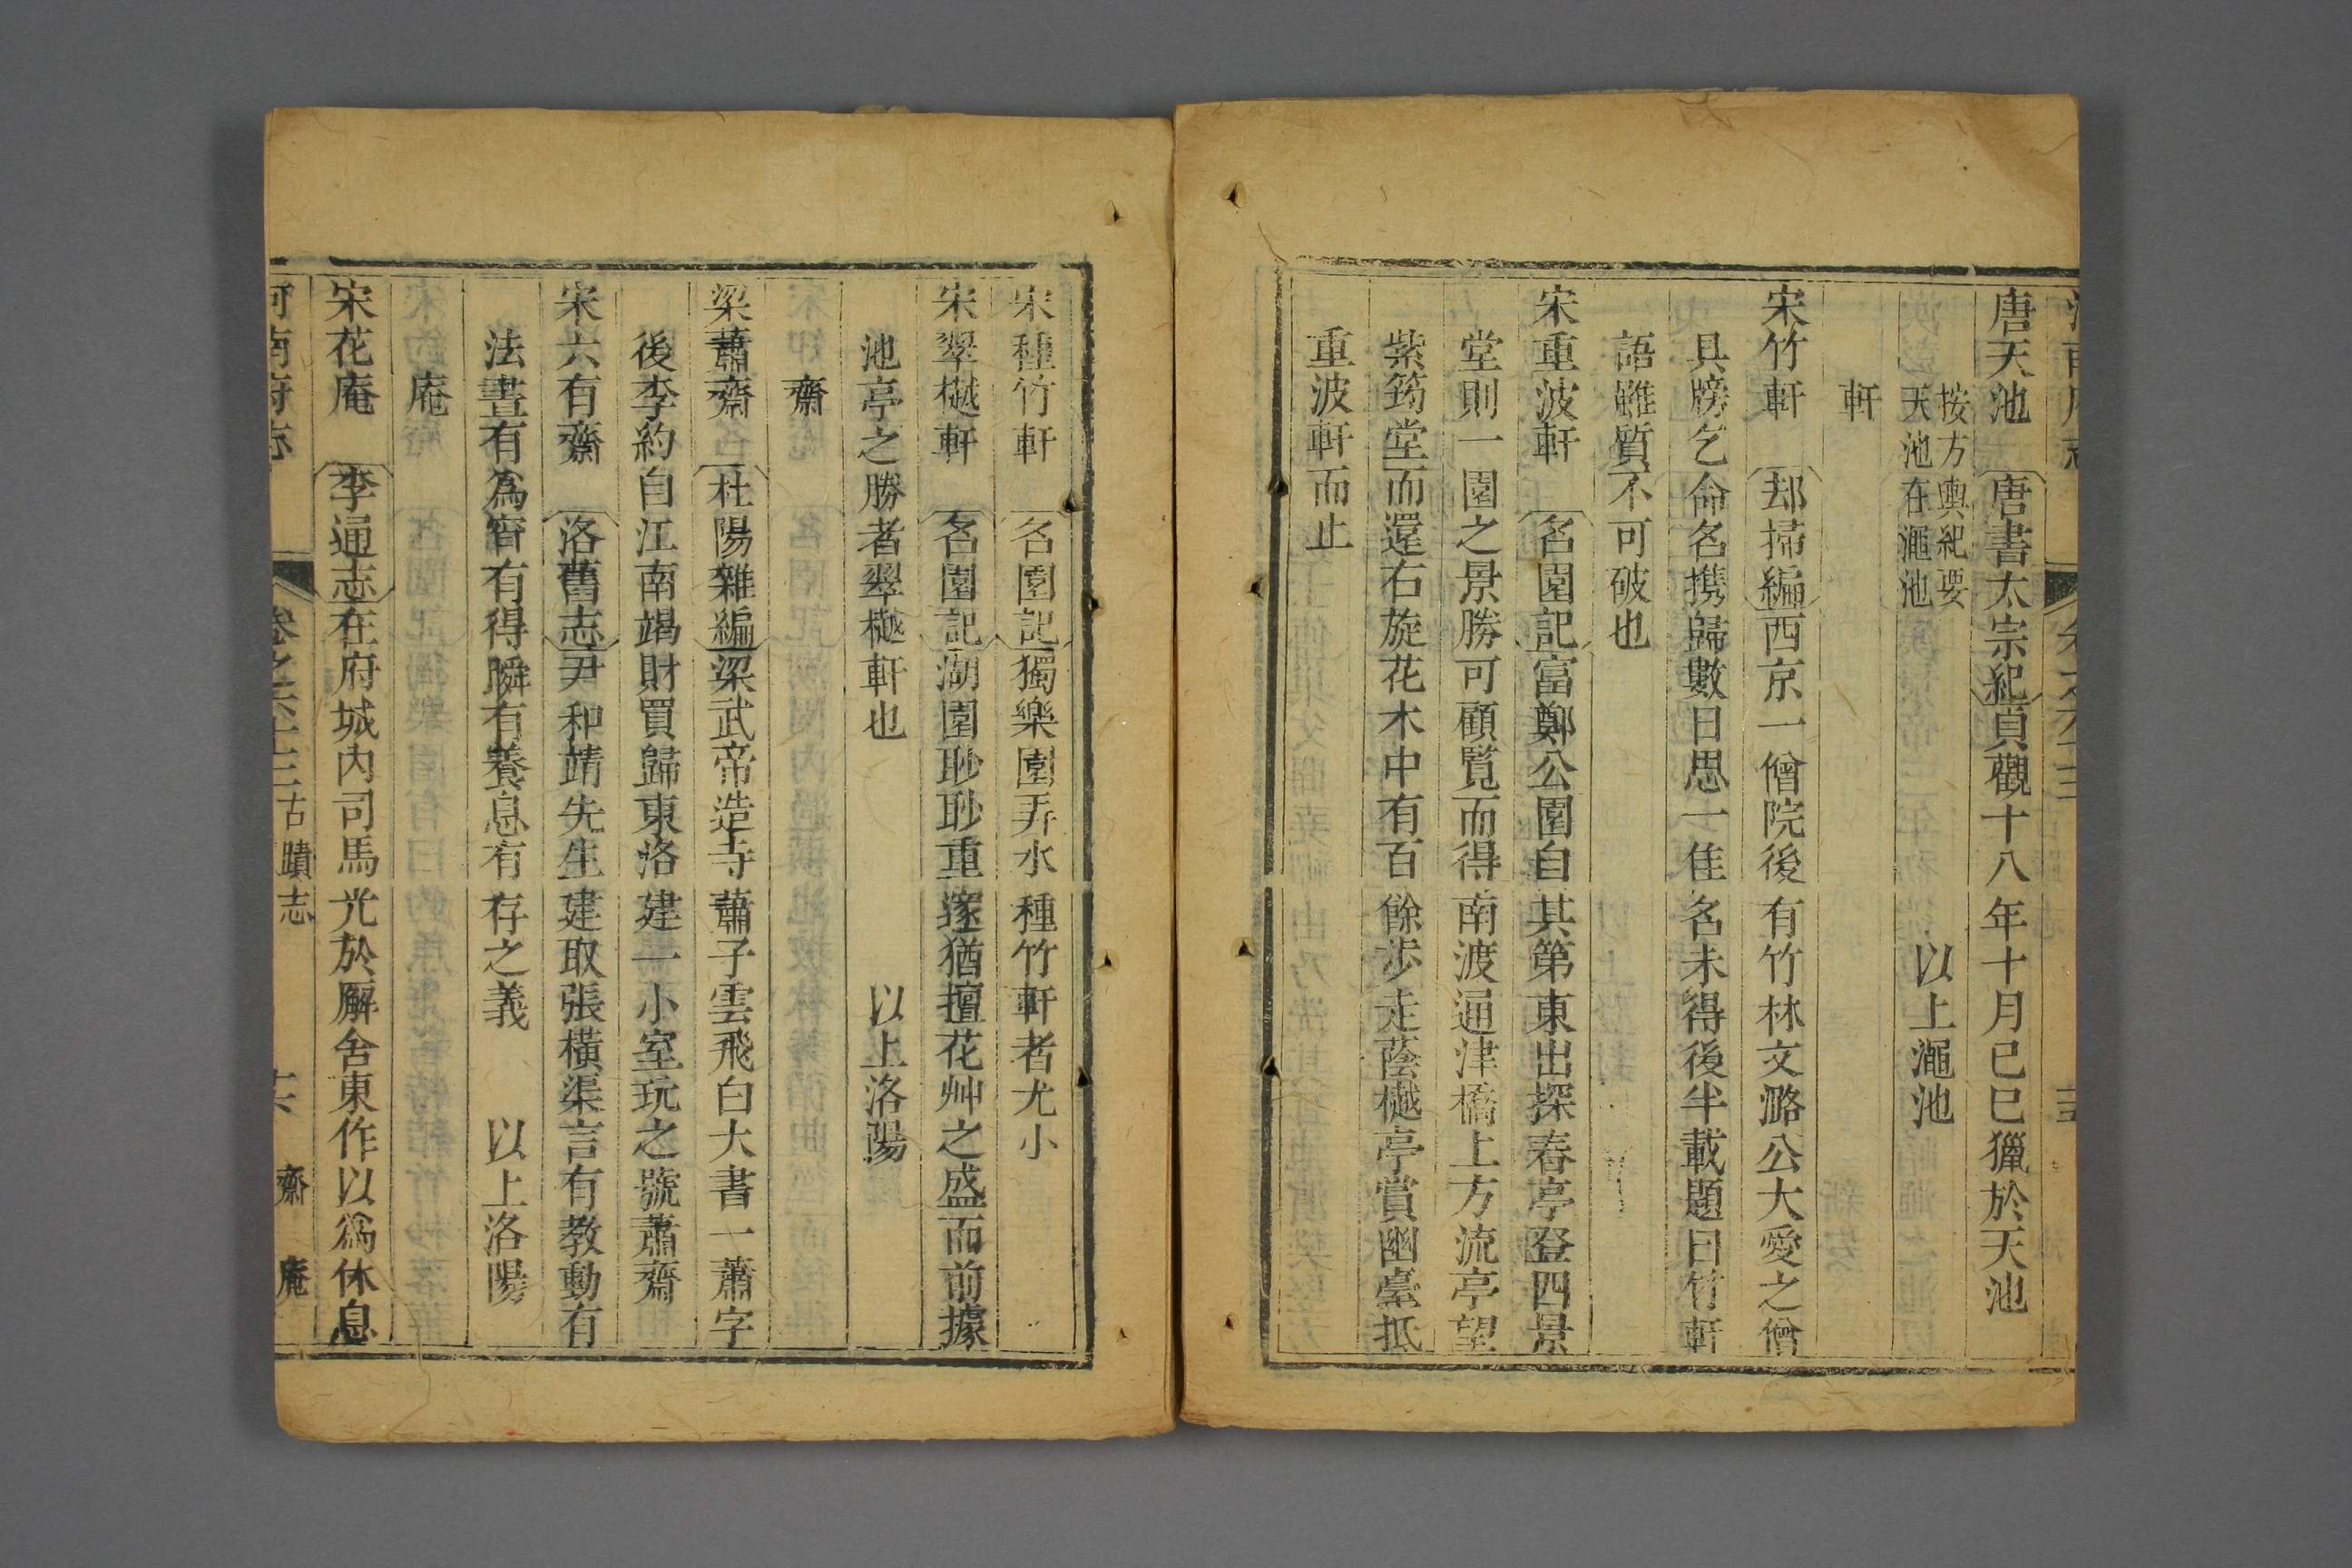 唐天池　唐書太宗紀貞觀十八年十月已巳獵於天池
按方輿紀要
天池在澠池
以上澠池
軒
宋竹軒　却掃編西京一僧院後有竹林文潞公大愛之僧
具牓乞命名携歸數日思一佳名未得後半載題曰竹軒
語雖質不可破也
宋重波軒　名園記富鄭公園自其第東出探春亭登四景
堂則一園之景勝可顧覽而得南渡通津橋上方流亭望
紫筠堂而還右旋花木中有百餘步走蔭樾亭賞幽臺抵
重波軒而止
宋種竹軒　名園記獨樂園弄水種竹軒者尤小
宋翠樾軒　名園記湖園眇眇重邃猶擅花艸之盛而前據
池亭之勝者翠樾軒也　以上洛陽
齋
梁蕭齋　杜陽雜編梁武帝造寺蕭子雲飛白大書一蕭字
後李約自江南竭財買歸東洛建一小室玩之號蕭齋
宋六有齋　洛舊志尹和靖先生建取張橫渠言有教動有
法晝有為宵有得瞬有養息有存之義　以上洛陽
庵
宋花庵　李通志在府城內司馬光於廨舍東作以為休息
河南府志　卷之六十三古蹟志　六　齋　庵